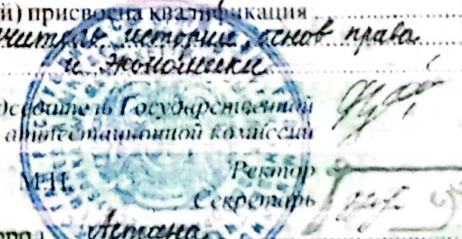 й) присвоена квалификация
учитель истории, основ права
и экономики
председатель Государственной
аттестационной комиссии
Ректор
М.П.
Секретарь
город Астана